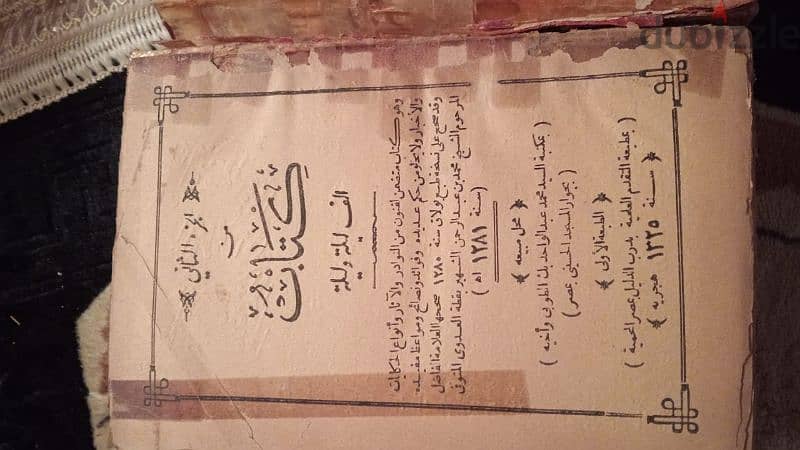 dubizzle
الجزء الثاني
من
كتاب
ألف ليلة وليلة
وهو كتاب متضمن لفنون من النوادر والآثار وأنواع الحكايات
والأخبار ولا يخلو من حكم عديده وفوائد ونصائح ومواعظ مفيده
وقد صحح على نسخة طبع بولاق سنة ١٢٨٠ صححها العلامة الفاضل
المرحوم الشيخ محمد بن عبد الرحمن الشهير بقطة العدوى المتوفى
( سنة ١٢٨١ اه )
محل مبيعه
( بمكتبة السيد محمد عبد الواحد بك الطوبى وأخيه )
( بجوار المسجد الحسينى بمصر )
( الطبعة الأولى )
( بمطبعة التقدم العلمية بدرب الدليل بمصر المحمية )
سنة ١٣٢٥ هجريه